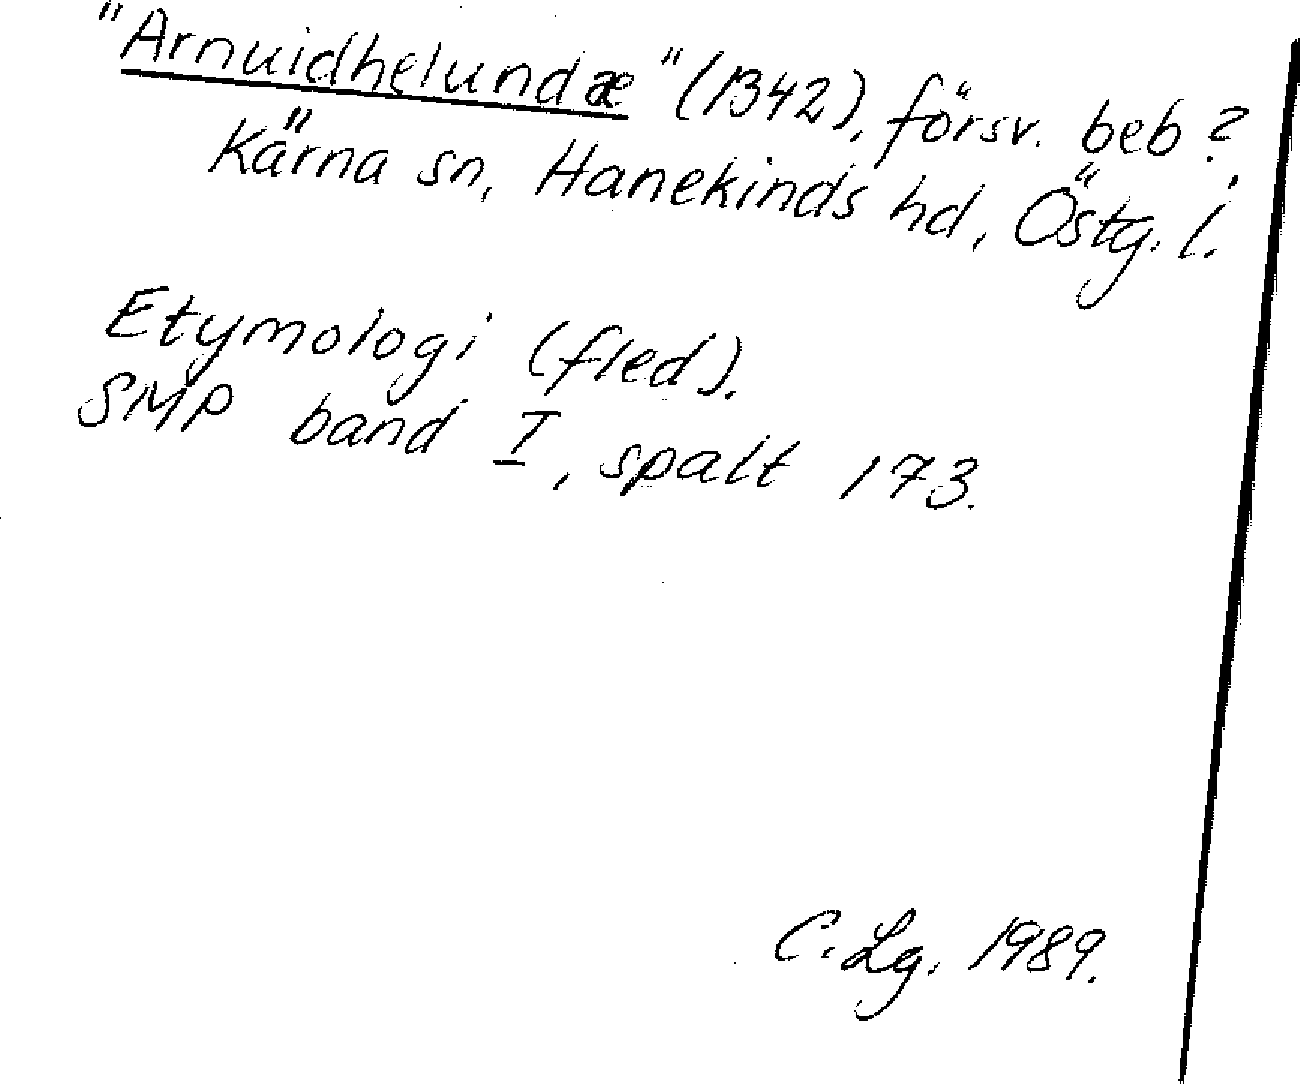 "Arnuidhelundæ" (1342), försv. beb?
Kärna sn, Hanekinds hd, Östg. l.
Etymologi (fled).
SMP band I, spalt 173.
C. Lg. 1989.